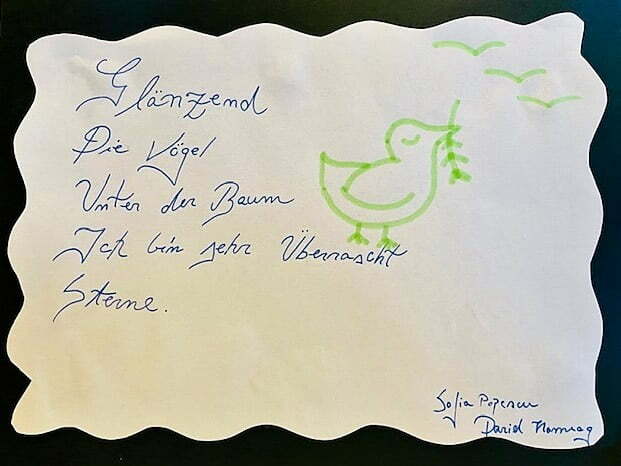 Glänzend
Die Vögel
Unter der Baum
Ich bin sehr Überrascht
Sterne.
Sofia Popescu
David